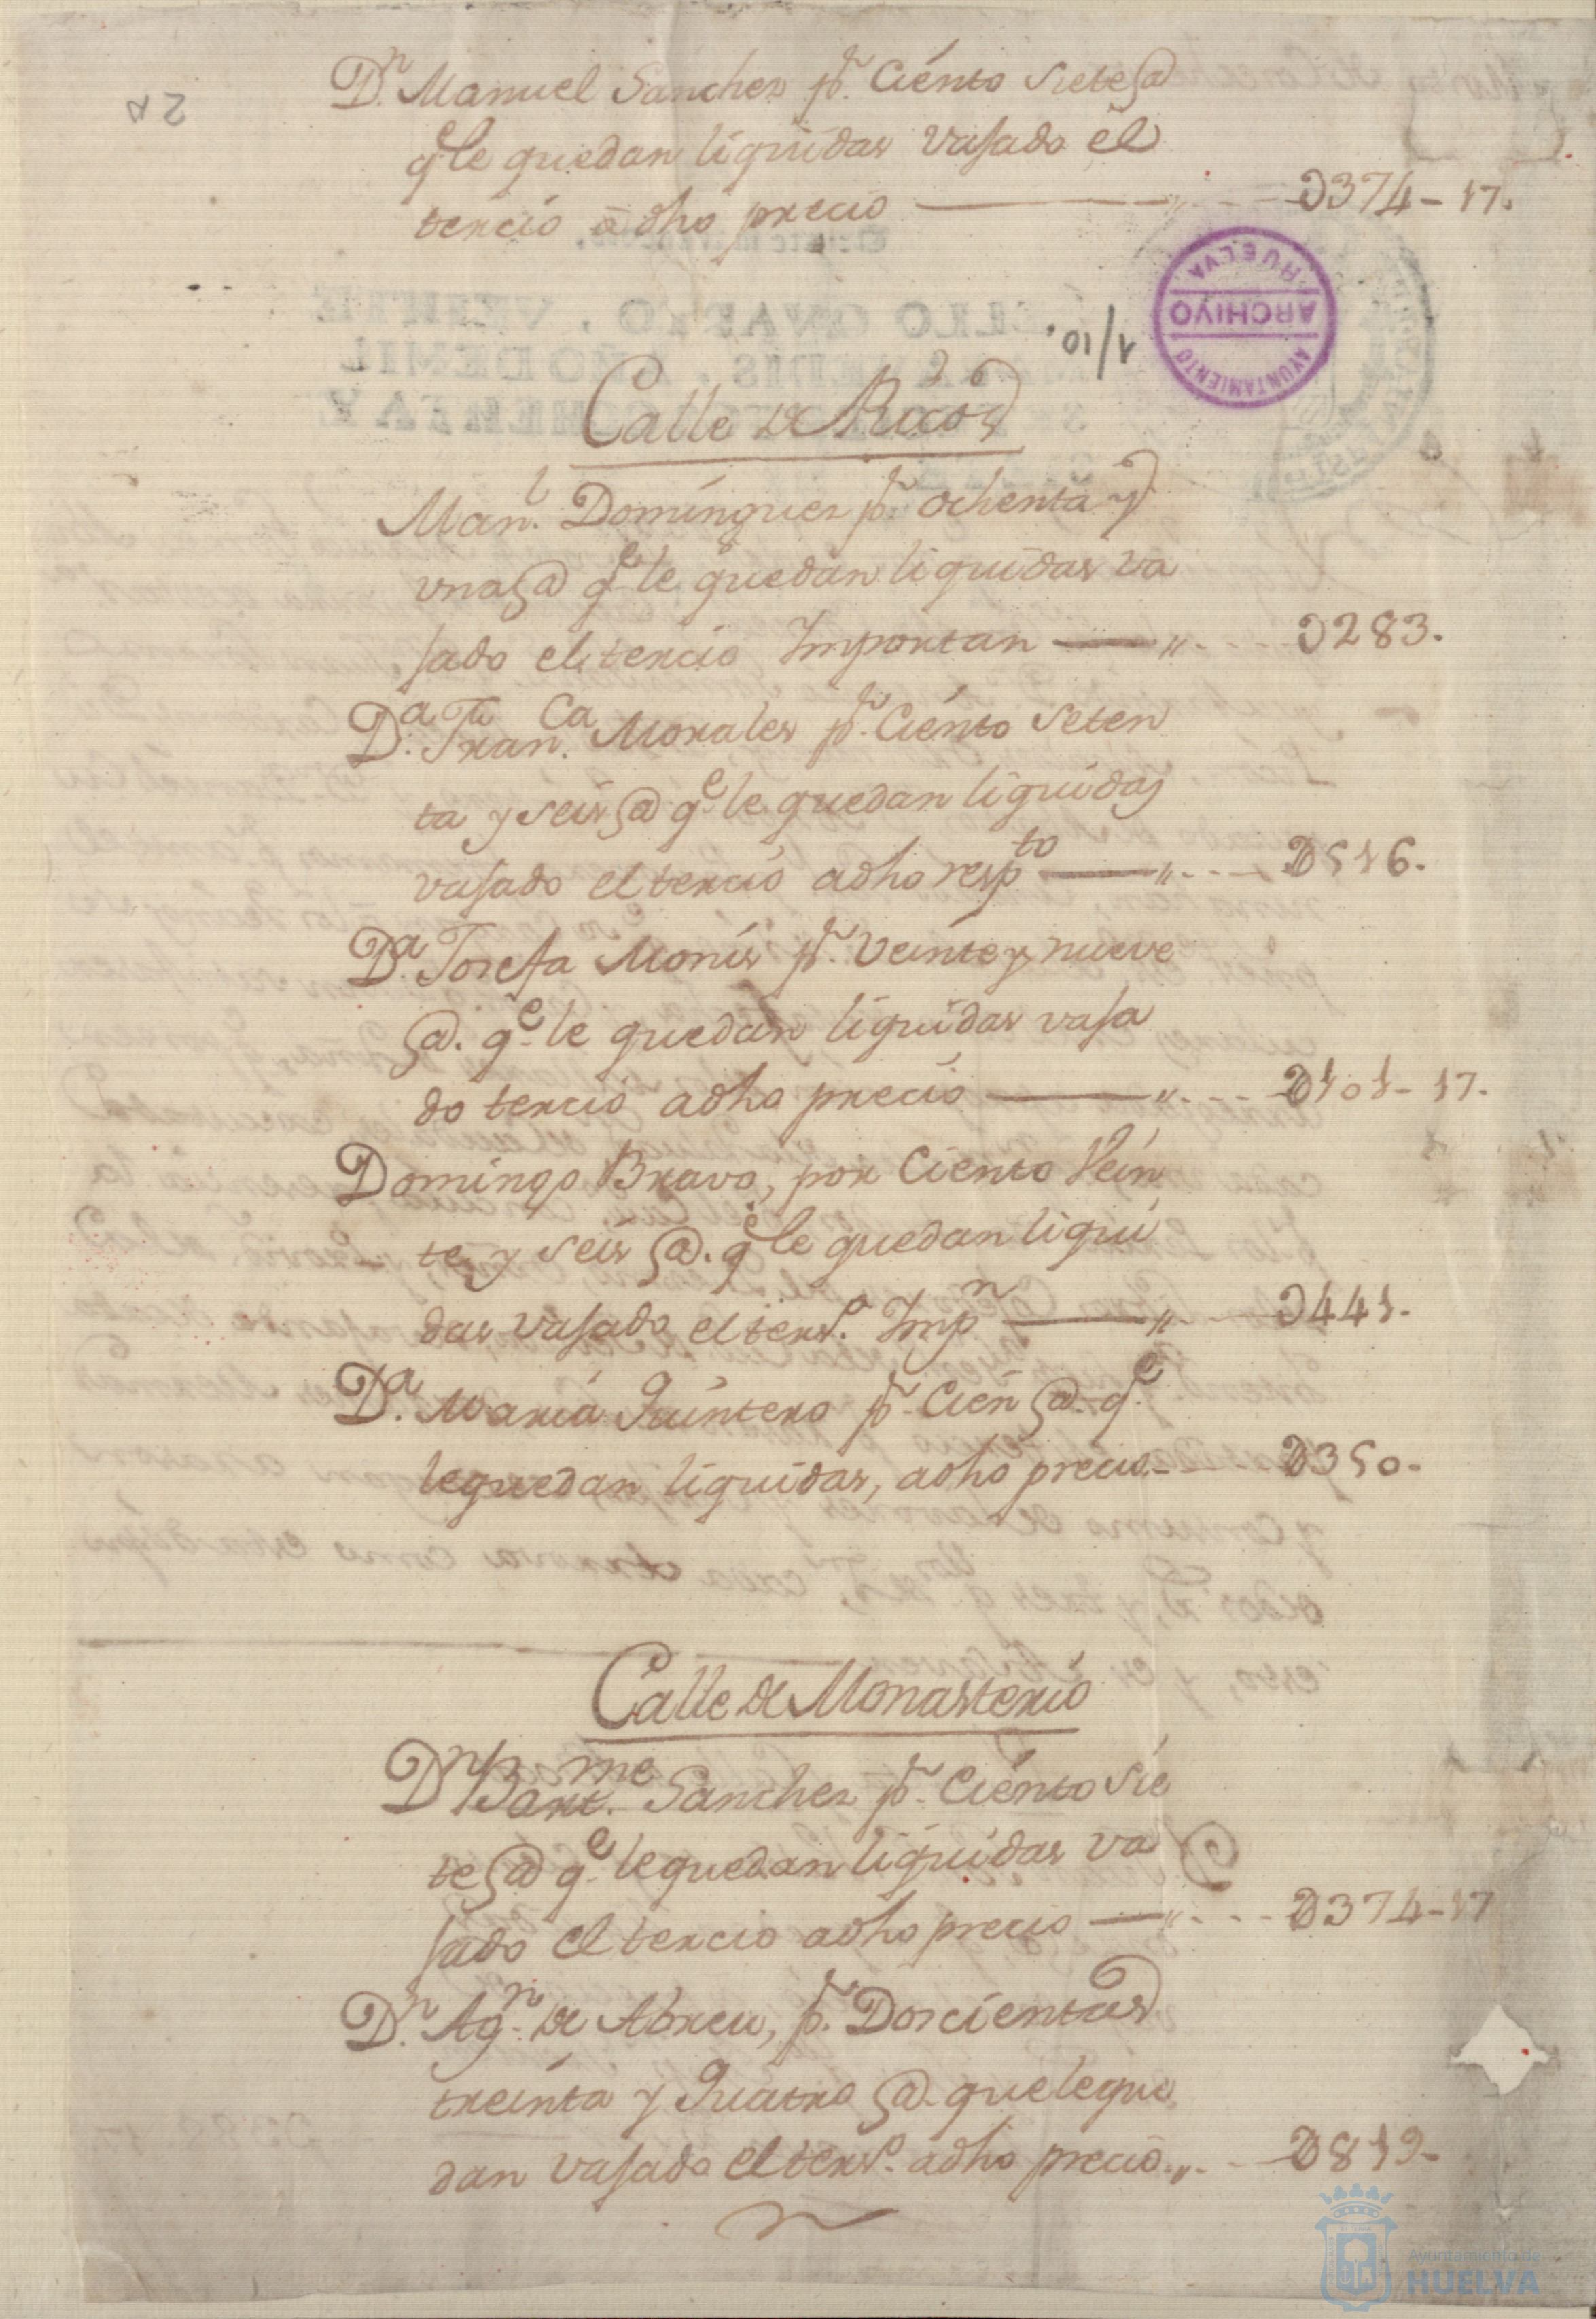 Dn. Manuel Sanchez pr. Ciento siete @
qe le quedan liquidas vasado el
tercio a dho precio ———„---- D374-17.
AYUNTAMIENTO
ARCHIVO
HUELVA
1/10.
Calle de Ricos
Manl. Dominguez pr. ochenta y
vna @ qe le quedan liquidas va
sado el tercio Importan ——„---- D283.
Da. Franca. Morales pr. Ciento seten
ta y seis @ qe. le quedan liquidas
vasado el tercio a dho respto ——„---- D616.
Da. Josefa Monis pr. Veinte y nueve
@. qe. le quedan liquidas vasa
do tercio a dho precio ———„---- D101-17.
Domingo Bravo, por Ciento Vein
te y seis @. qe le quedan liqui
das vasado el terso. Impn ———„---- D441.
Da. Maria Quintero pr. Cien @. qe.
le quedan liquidas, a dho precio.---- D350.
Calle de Monasterio
Dn Bartme. Sanchez pr. Ciento sie
te @ qe. le quedan liquidas va
sado el tercio a dho precio ——„---- D374-17
Dn. Agn. de Abreu, pr. Doscientas
treinta y Quatro @. que le que
dan vasado el terso. a dho precio.„.-- D819-
Ayuntamiento de
HUELVA